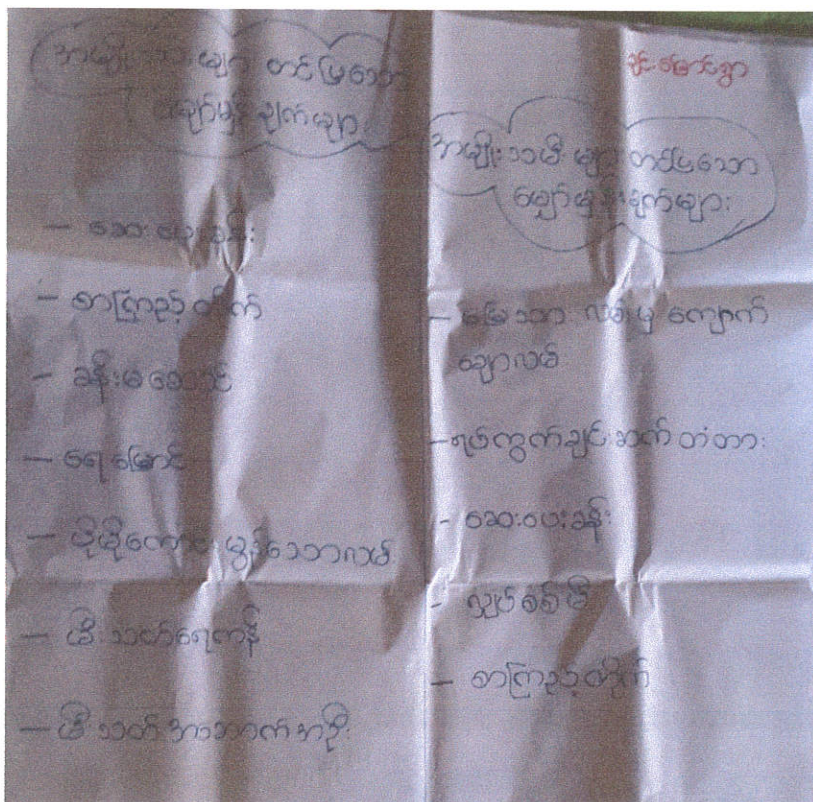 အမျိုးသားများ တင်ပြသော
မျှော်မှန်းချက်များ
- ဆေးပေးခန်း
- စာကြည့်တိုက်
- ခန်းမဆောင်
- ရေမြောင်း
- ပိုမိုကောင်းမွန်သောလမ်း
- မီးသတ်ရေကန်
- မီးသတ်အဆောက်အဦး
ချင်းမြောင်ရွာ
အမျိုးသမီးများ တင်ပြသော
မျှော်မှန်းချက်များ
- မြေသားလမ်းမှ ကျောက်
ချောလမ်း
- ရပ်ကွက်ချင်းဆက် တံတား
- ဆေးပေးခန်း
- လျှပ်စစ်မီး
- စာကြည့်တိုက်